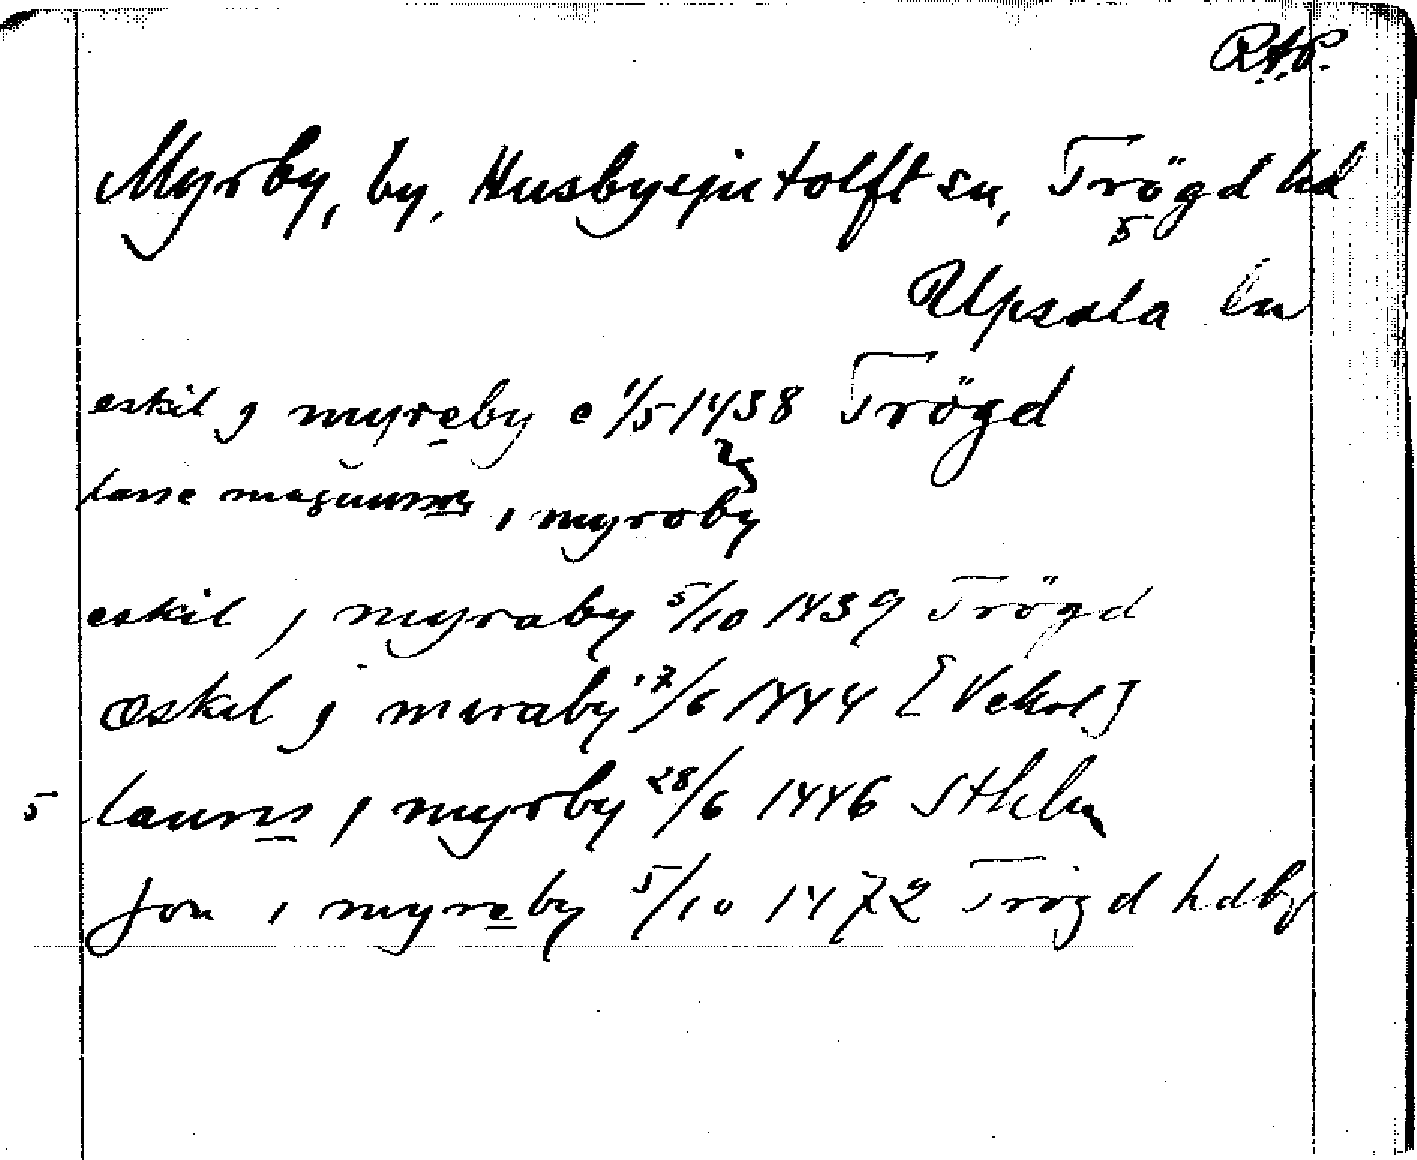 R.A.P.
Myrby, by, Husbysjutolft sn, Trögd hd
5
Upsala län
eskil j myreby e 1/5 1438 Trögd
25
lasse magnussø, i myroby
eskil j myraby 5/10 1439 Trögd
æskil j miraby 17/6 1444 [Vekol]
5 laurns j myrby 28/6 1446 Sthlm
Jon i myreby 5/10 1472 Trögd hdby